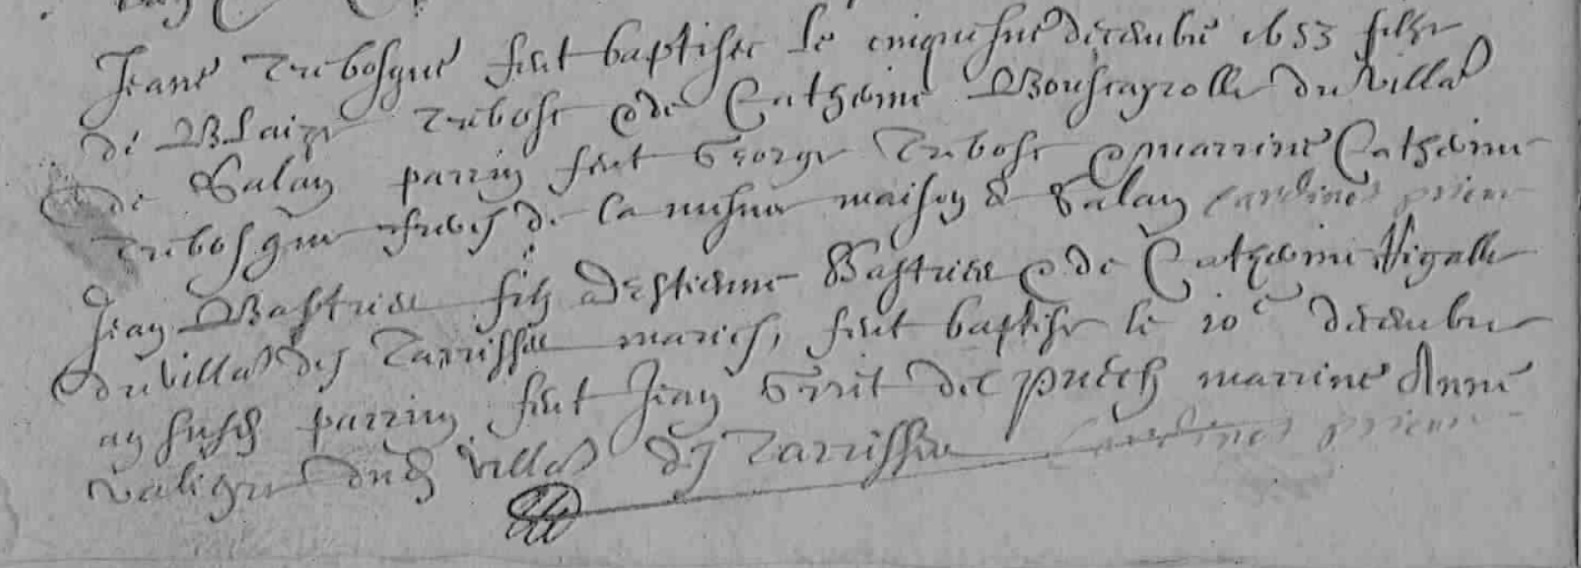 Jeane Tribosque feut baptisee le cinquiesme decembre 1653 fille
de Blaize Tribost et de Catherine Bouscayrolle du villa
de Salan parrin feut George Tribost et marrine Catherine
Tribosque de la mesme maison de Salan prieur
Jean Bastride filz d'Estienne Bastride et de Catherine Vigalle
du villa des Tarrisse maries, feut baptise le 10e decembre
an susd parrin feut Jean Grit del puech marrine Anne
dud villa des Tarrisse prieur